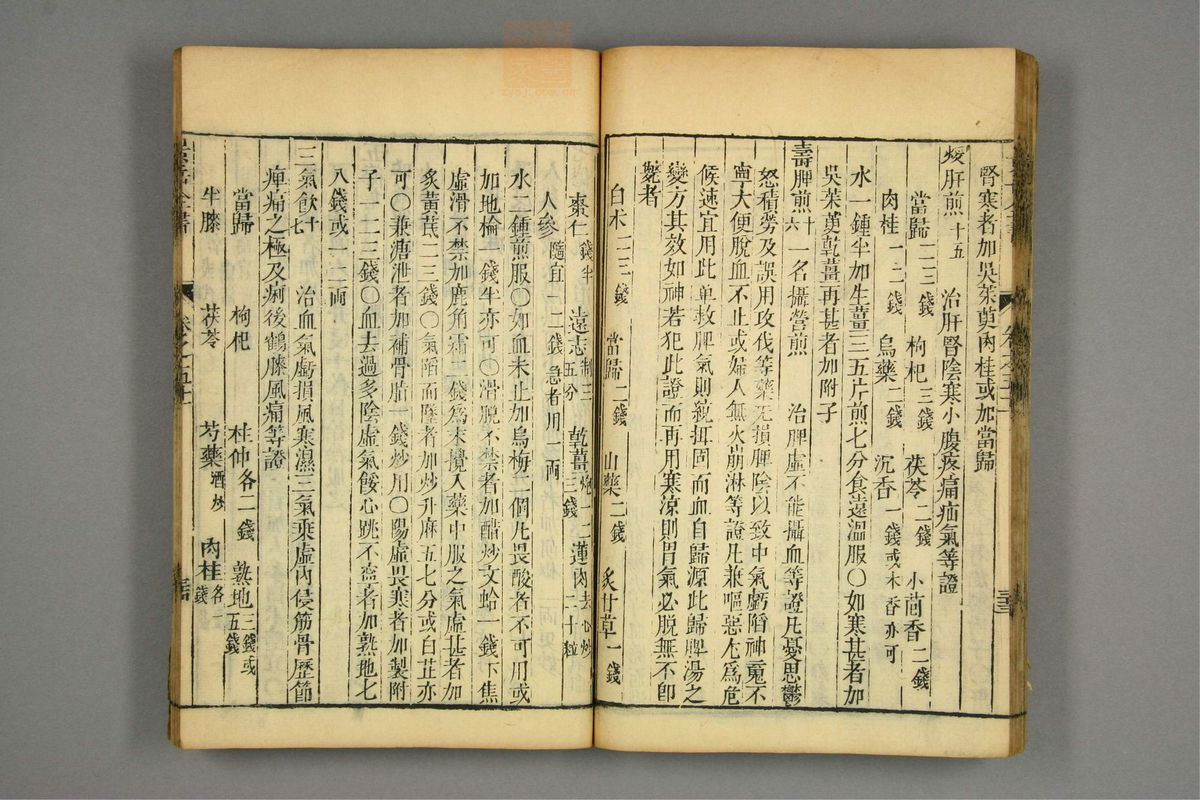 腎寒者加吳茱萸肉桂或加當歸
煖肝煎十五 治肝腎陰寒小腹疼痛疝氣等證
當歸二三錢 枸杞三錢 茯苓二錢 小茴香二錢
肉桂一二錢 烏藥二錢 沉香一錢或木香亦可
水一鍾半加生薑三五片煎七分食遠溫服〇如寒甚者加
吳茱萸乾薑再甚者加附子
壽脾煎十六 一名攝營煎 治脾虛不能攝血等證凡憂思鬱
怒積勞及誤用攻伐等藥犯損脾陰以致中氣虧陷神䰟不
寧大便脫血不止或婦人無火崩淋等證凡兼嘔惡尤爲危
候速宜用此單救脾氣則統攝固而血自歸源此歸脾湯之
變方其效如神若犯此證而再用寒涼則胃氣必脫無不即
斃者
白朮二三錢 當歸二錢 山藥二錢 炙甘草一錢
棗仁錢半 遠志製三五分 乾薑炮一二三錢 蓮肉去心炒二十粒
人參隨宜一二錢急者用一兩
水二鍾煎服〇如血未止加烏梅二個凡畏酸者不可用或
加地榆一錢半亦可〇滑脫不禁者加醋炒文蛤一錢下焦
虛滑不禁加鹿角霜二錢爲末攪入藥中服之氣虛甚者加
炙黃芪二三錢〇氣陷而墜者加炒升麻五七分或白芷亦
可〇兼溏泄者加補骨脂一錢炒用〇陽虛畏寒者加製附
子一二三錢〇血去過多陰虛氣餒心跳不寧者加熟地七
八錢或一二兩
三氣飲十七 治血氣虧損風寒濕三氣乘虛內侵筋骨歷節
痺痛之極及痢後鶴膝風痛等證
當歸 枸杞 杜仲各二錢 熟地三錢或五錢
牛膝 茯苓 芍藥酒炒 肉桂各一錢